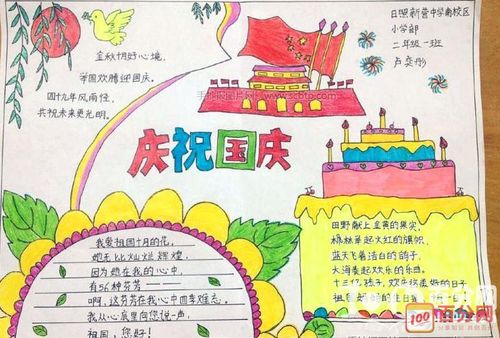 日照新营中学南校区
小学部
二年级一班
卢奕彤
金秋十月好心境,
举国欢腾迎国庆。
四十九年风雨程,
共祝未来更光明。
庆祝国庆
我爱祖国十月的花,
她无比灿烂辉煌,
因为想在我的心中,
有56种芬芳——
啊,这芬芳在我心中四季难忘。
我从心底里向您说一声,
祖国,您好!
田野献上金黄的果实,
枫林举起火红的旗帜,
蓝天飞着洁白的鸽子,
大海奏起欢乐的乐曲。
十三亿孩子,欢庆您
100